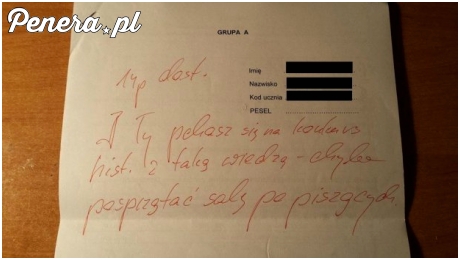 Penera.pl
GRUPA A
Imię
Nazwisko
Kod ucznia
PESEL
14p dost.
I Ty pchasz się na konkurs
hist. z taką wiedzą - chyba
posprzątać salę po piszących